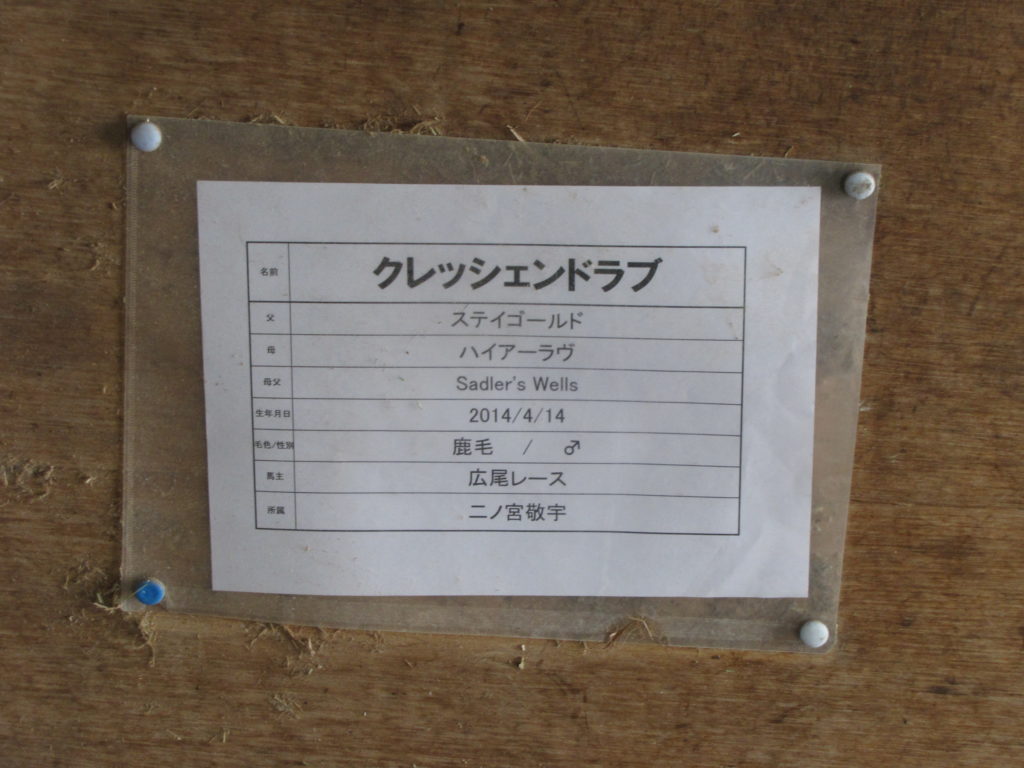 名前 クレッシェンドラブ
父 ステイゴールド
母 ハイアーラヴ
母父 Sadler's Wells
生年月日 2014/4/14
毛色/性別 鹿毛 / ♂
馬主 広尾レース
所属 二ノ宮敬宇